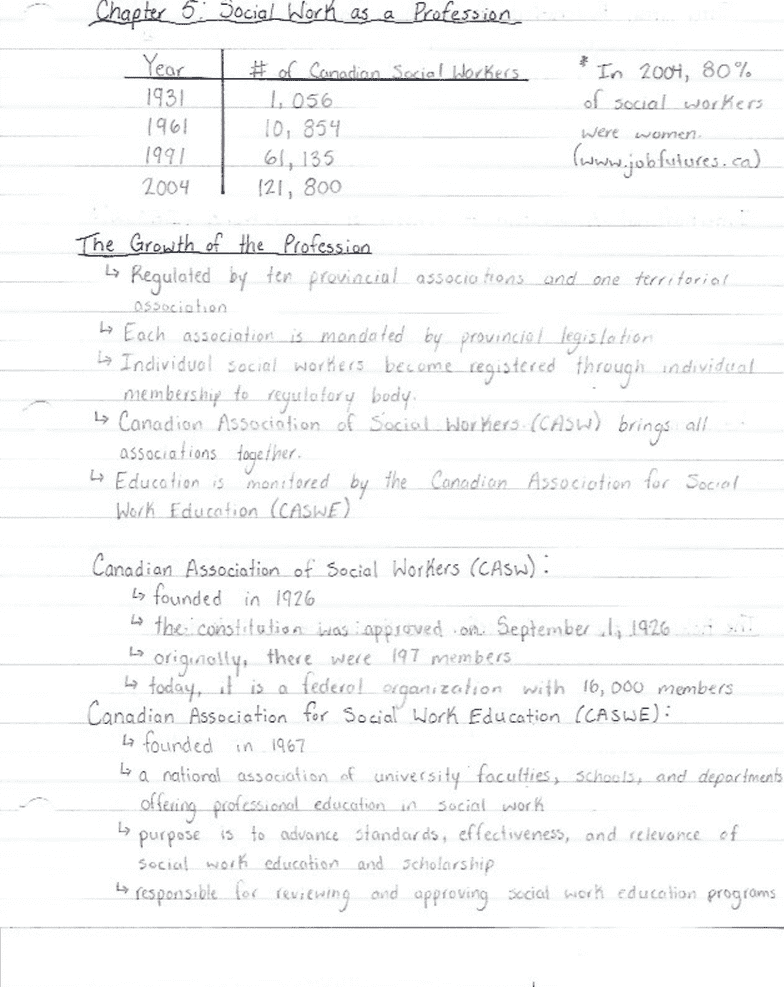 Chapter 5: Social Work as a Profession
Year # of Canadian Social Workers
1931 1,056
1961 10,854
1991 61,135
2004 121,800
* In 2004, 80%
of social workers
were women.
(www.jobfutures.ca)
The Growth of the Profession
↳ Regulated by ten provincial associations and one territorial
association
↳ Each association is mandated by provincial legislation
↳ Individual social workers become registered through individual
membership to regulatory body.
↳ Canadian Association of Social Workers (CASW) brings all
associations together.
↳ Education is monitored by the Canadian Association for Social
Work Education (CASWE)
Canadian Association of Social Workers (CASW):
↳ founded in 1926
↳ the constitution was approved on September 1, 1926
↳ originally, there were 197 members
↳ today, it is a federal organization with 16,000 members
Canadian Association for Social Work Education (CASWE):
↳ founded in 1967
↳ a national association of university faculties, schools, and departments
offering professional education in social work
↳ purpose is to advance standards, effectiveness, and relevance of
social work education and scholarship
↳ responsible for reviewing and approving social work education programs